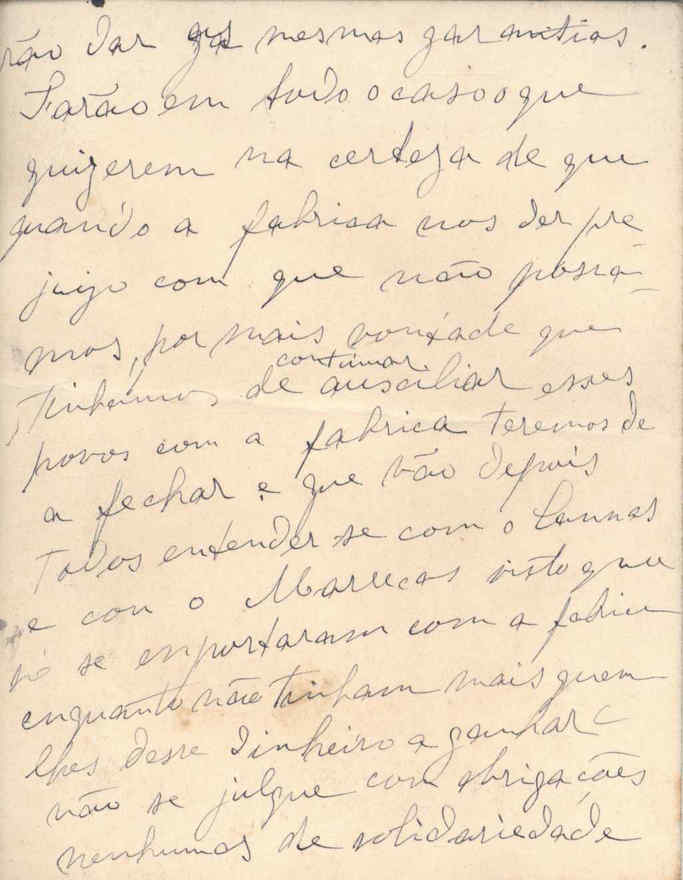 rão dar as mesmas garantias.
Farão em todo o caso o que
quizerem na certeza de que
quando a fabrica nos der pre
juizo com que não possa-
mos, por mais vontade que
continuar
tinhamos de auxciliar esses
povos com a fabrica teremos de
a fechar e que vão depois
todos entender-se com o Cannas
e con o Marrecas visto que
só se emportaram com a fabrica
enquanto não tinham mais quem
lhes desse dinheiro a ganhar
não se julgue com obrigações
nenhumas de solidariedade